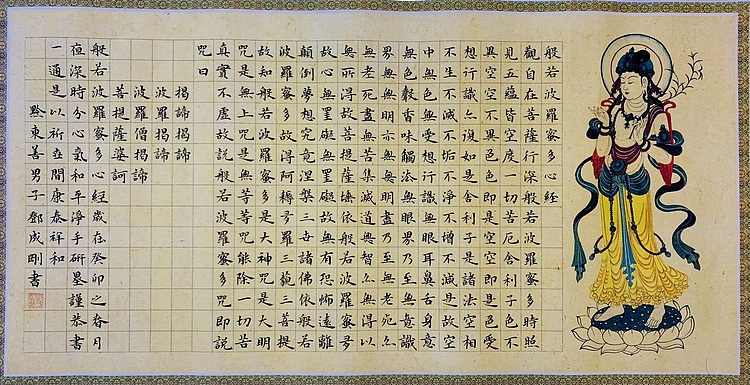 般若波羅蜜多心經
觀自在菩薩行深般若波羅蜜多時照
見五蘊皆空度一切苦厄舍利子色不
異空空不異色色即是空空即是色受
想行識亦復如是舍利子是諸法空相
不生不滅不垢不淨不增不減是故空
中無色無受想行識無眼耳鼻舌身意
無色聲香味觸法無眼界乃至無意識
界無無明亦無無明盡乃至無老死亦
無老死盡無苦集滅道無智亦無得以
無所得故菩提薩埵依般若波羅蜜多
故心無罣礙無罣礙故無有恐怖遠離
顛倒夢想究竟涅槃三世諸佛依般若
波羅蜜多故得阿耨多羅三藐三菩提
故知般若波羅蜜多是大神咒是大明
咒是無上咒是無等等咒能除一切苦
真實不虛故說般若波羅蜜多咒即說
咒曰
揭諦揭諦
波羅揭諦
波羅僧揭諦
菩提薩婆訶
般若波羅蜜多心經歲在癸卯之春月
夜深時分心氣和平淨手研墨謹恭書
一通是以祈世間康泰祥和
黔東善男子鄧成剛書